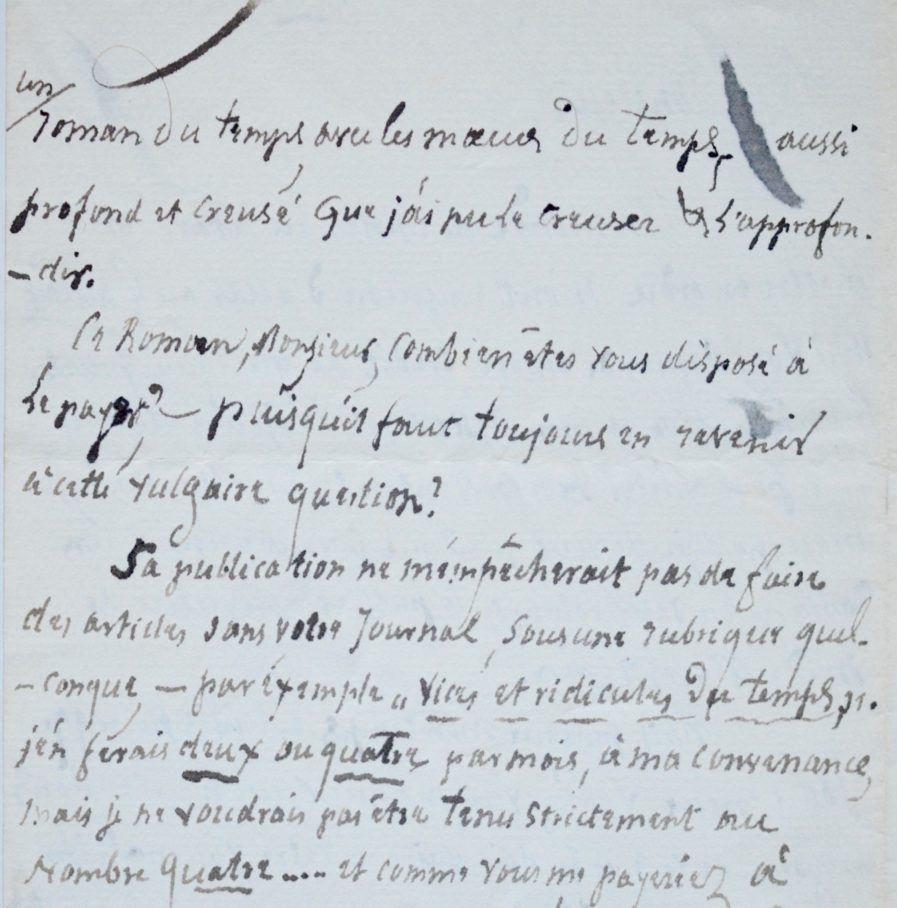 un
roman du temps, avec les mœurs du temps, aussi
profond et creusé que j'ai pu le creuser & l'approfon-
-dir.
Ce Roman, Monsieur, combien êtes vous disposé à
le payer? — puisqu'il faut toujours en revenir
à cette vulgaire question?
Sa publication ne m'empêcherait pas de faire
des articles dans votre Journal, sous une rubrique quel-
-conque, — par exemple „ vices et ridicules du temps, ".
j'en ferais deux ou quatre par mois, à ma convenance,
mais je ne voudrais pas être tenu strictement au
nombre quatre .... et comme vous me payeriez à